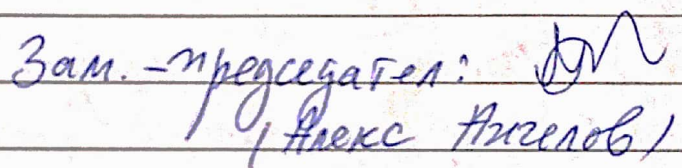 Зам. -председател:
(Алекс Ангелов)